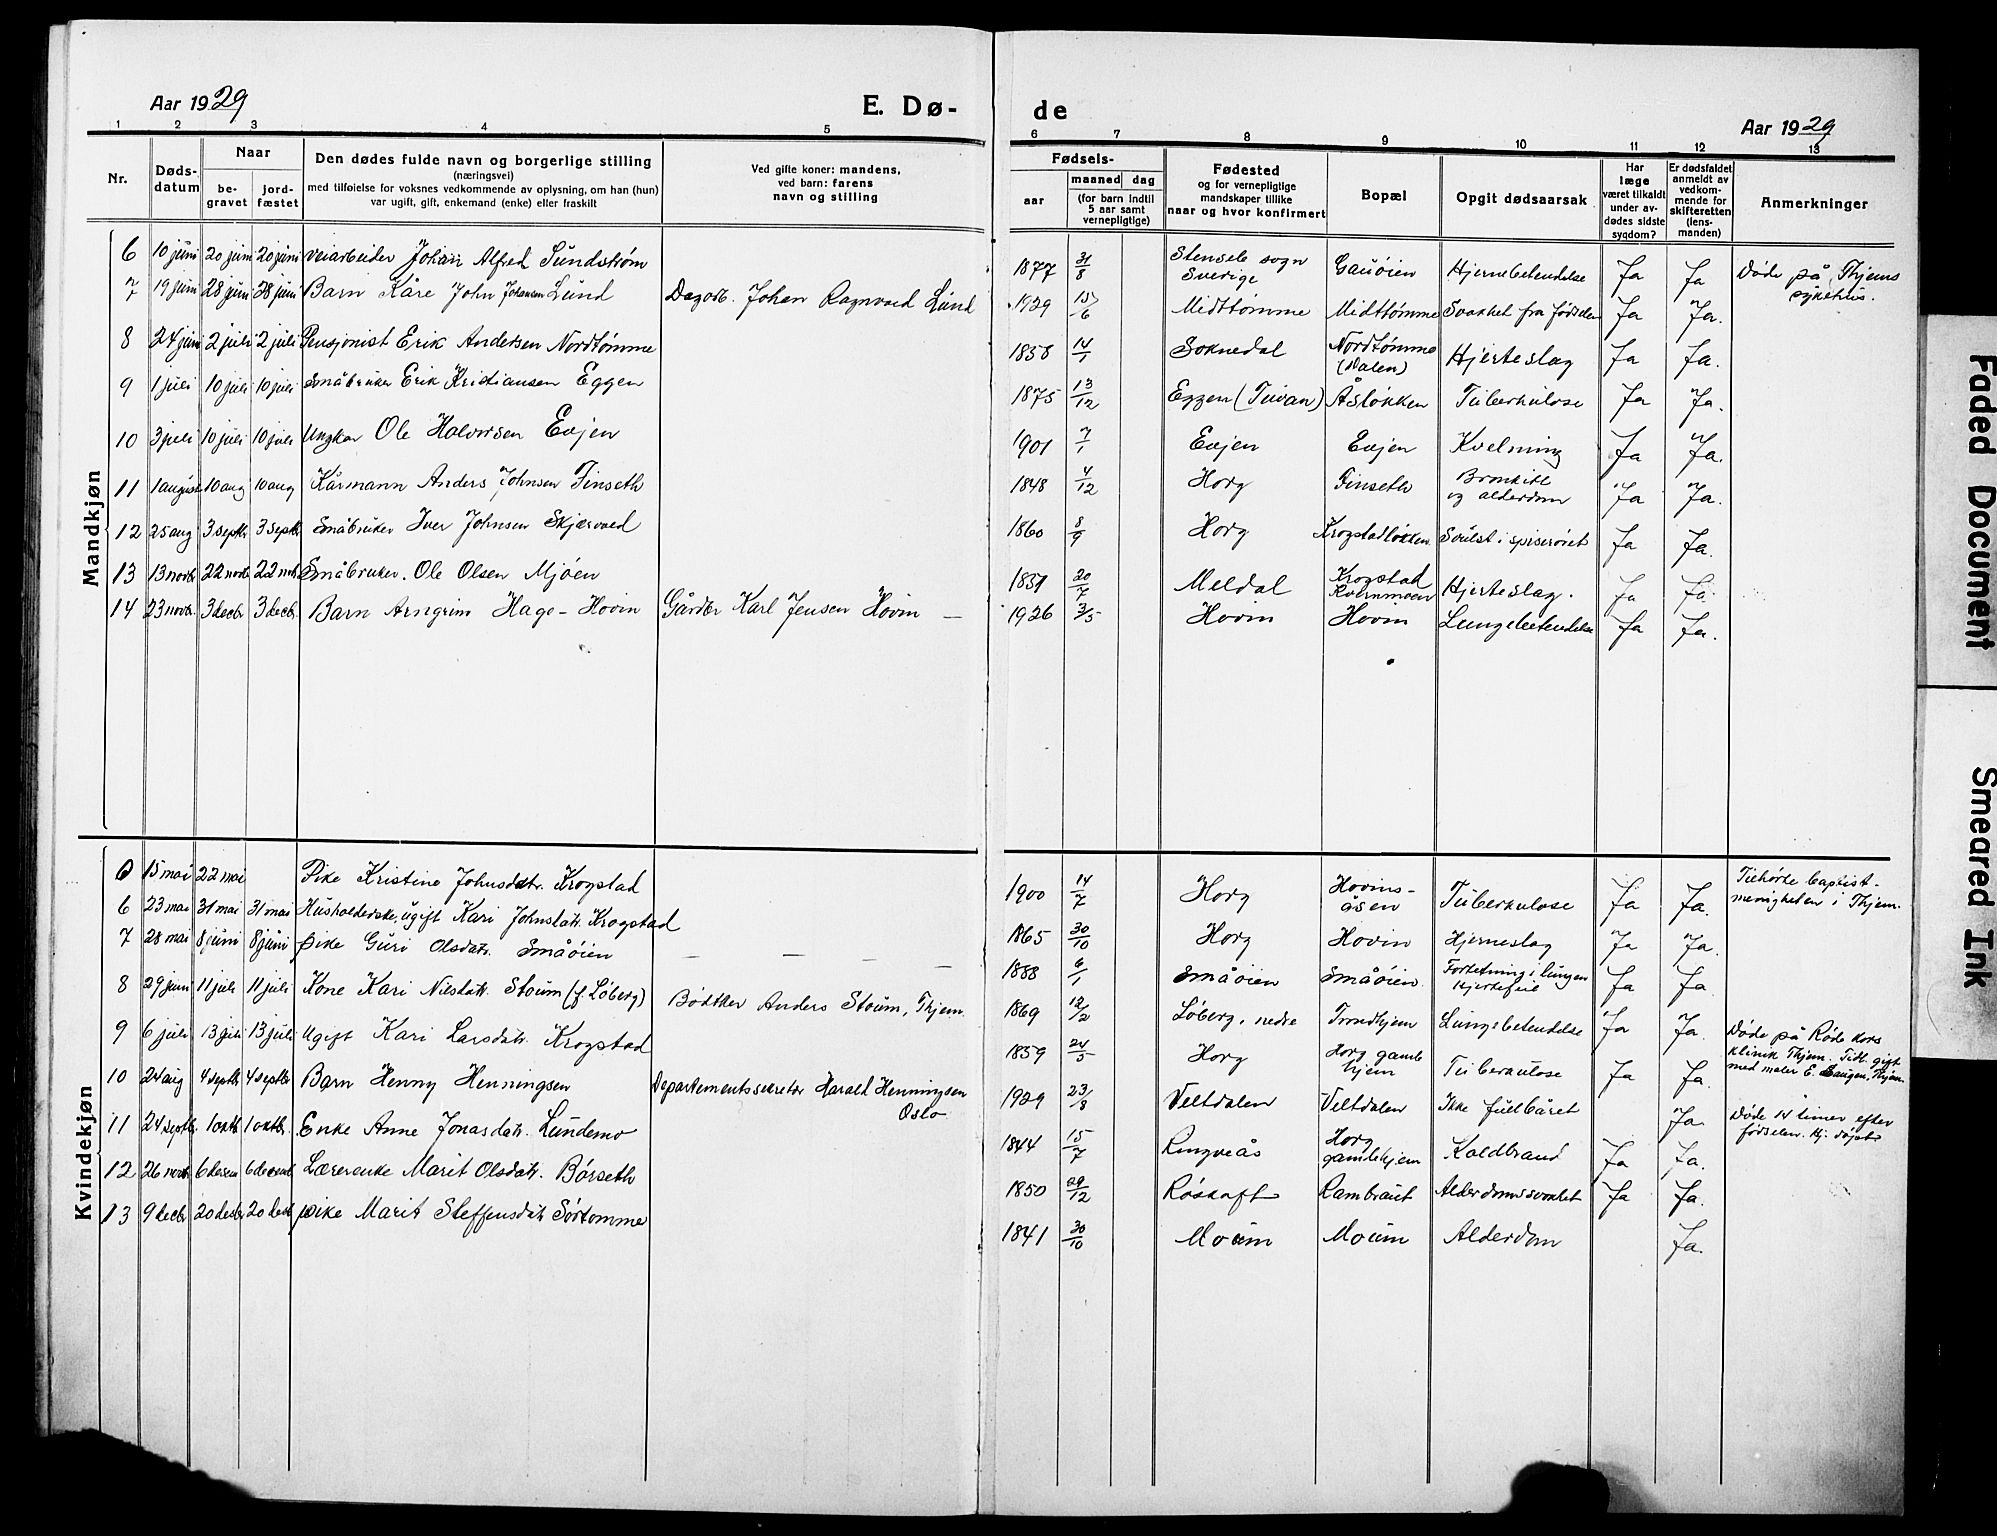 Aar 1929
E. Dø-
1 2 3 4 5
Nr.
Døds-
datum
Naar
be-
gravet
jord-
fæstet
Den dødes fulde navn og borgerlige stilling
(næringsvei)
med tilføielse for voksnes vedkommende av oplysning, om han (hun)
var ugift, gift, enkemand (enke) eller fraskilt
Ved gifte koner: mandens,
ved barn: farens
navn og stilling
Mandkjøn
6 10 juni 20 juni 20 juni Veiarbeider Johan Alfred Sundstrøm
7 19 juni 28 juni 28 juni Barn Kåre John Johansen Lund Dagarb. Johan Ragnvald Lund
8 24 juni 2 juli 2 juli Pensjonist Erik Andersen Nordtømme
9 1 juli 10 juli 10 juli Småbruker Erik Kristiansen Eggen
10 3 juli 10 juli 10 juli Ungkar Ole Halvorsen Evjen
11 1 august 10 aug 10 aug Kårmann Anders Johnsen Finseth
12 25 aug 3 septbr 3 septbr Småbruker Iver Johnsen Skjærvold
13 13 novbr 22 novbr 22 novbr Småbruker. Ole Olsen Mjøen
14 23 novbr. 3 decbr 3 decbr. Barn Arngrim Hage-Hovin Gårdbr Karl Jensen Hovin —
Kvindekjøn
0 15 mai 22 mai Pike Kristine Johnsdatr. Krogstad
6 23 mai 31 mai 31 mai Husholderske, ugift Kari Johnsdatr. Krogstad
7 28 mai 8 juni 8 juni Pike Guri Olsdatr. Småøien — — — —
8 29 juni 11 juli 11 juli Kone Kari Nilsdatr. Stoum (f. Løberg) Bødtker Anders Stoum, Thjem.
9 6 juli 13 juli 13 juli Ugift Kari Larsdatr. Krogstad
10 24 aug 4 septbr 4 septbr Barn Henny Henningsen Departementssekretær Harald Henningsen
Oslo
11 24 septbr. 1 oktbr 1 oktbr. Enke Anne Jonasdatr. Lundemo
12 26 novbr 6 desem 6 desemb Lærerenke Marit Olsdatr. Børseth
13 9 decbr 20 desbr 20 desb pike Marit Steffensdatr Sørtømme
de
Aar 1929
6 7 8 9 10 11 12 13
Fødsels-
aar
maaned dag
(for barn indtil
5 aar samt
vernepligtige)
Fødested
og for vernepligtige
mandskaper tillike
naar og hvor konfirmert
Bopæl
Opgit dødsaarsak
Har
læge
været tilkaldt
under av-
dødes sidste
sygdom?
Er dødsfaldet
anmeldt av
vedkom-
mende for
skifteretten
(lens-
manden)
Anmerkninger
1877 31/8 Stensele sogn
Sverige Gauøien Hjernebetendelse Ja Ja Døde på Thjems
sykehus.
1929 15/6 Midttømme Midttømme Svakhet fra fødselen Ja Ja.
1858 14/1 Soknedal Nordtømme
(Dalen) Hjerteslag Ja Ja.
1875 13/12 Eggen (Tuvan) Åsløkken Tuberkulose Ja Ja.
1901 7/1 Evjen Evjen Kvelning Ja Ja.
1848 4/12 Horg Finseth Bronkitt
og alderdom Ja Ja.
1860 8/9 Horg Krogstadløkken Svulst i spiserøret Ja Ja.
1851 20/7 Meldal Krogstad
Kvernmoen Hjerteslag. Ja Ja.
1926 3/5 Hovin Hovin Lungebetendelse Ja Ja.
1900 14/7 Horg Hovins-
åsen Tuberkulose Ja Ja. Tilhørte Baptist-
menigheten i Thjem.
1865 30/10 Horg Hovin Hjerneslag Ja Ja.
1888 6/1 Småøien Småøien Fortetning i lungen
Hjertefeil Ja Ja.
1869 12/2 Løberg, nedre Trondhjem Lungebetendelse Ja Ja. Døde på Røde kors
klinik Thjem. Tidl. gift
med maler E. Haugen, Thjem.
1859 24/5 Horg Horg gamle
hjem Tuberkulose Ja Ja.
1929 23/8 Veltdalen Veltdalen Ikke fullbåret Ja. Døde 14 timer efter
fødselen. Hj. døpt
1844 15/7 Ringveås Horg
gamlehjem Koldbrand Ja Ja.
1850 29/12 Røskaft Rambraut Alderdomssvakhet Ja Ja.
1841 30/10 Moum Moum Alderdom Ja.
Faded Document
Smeared Ink